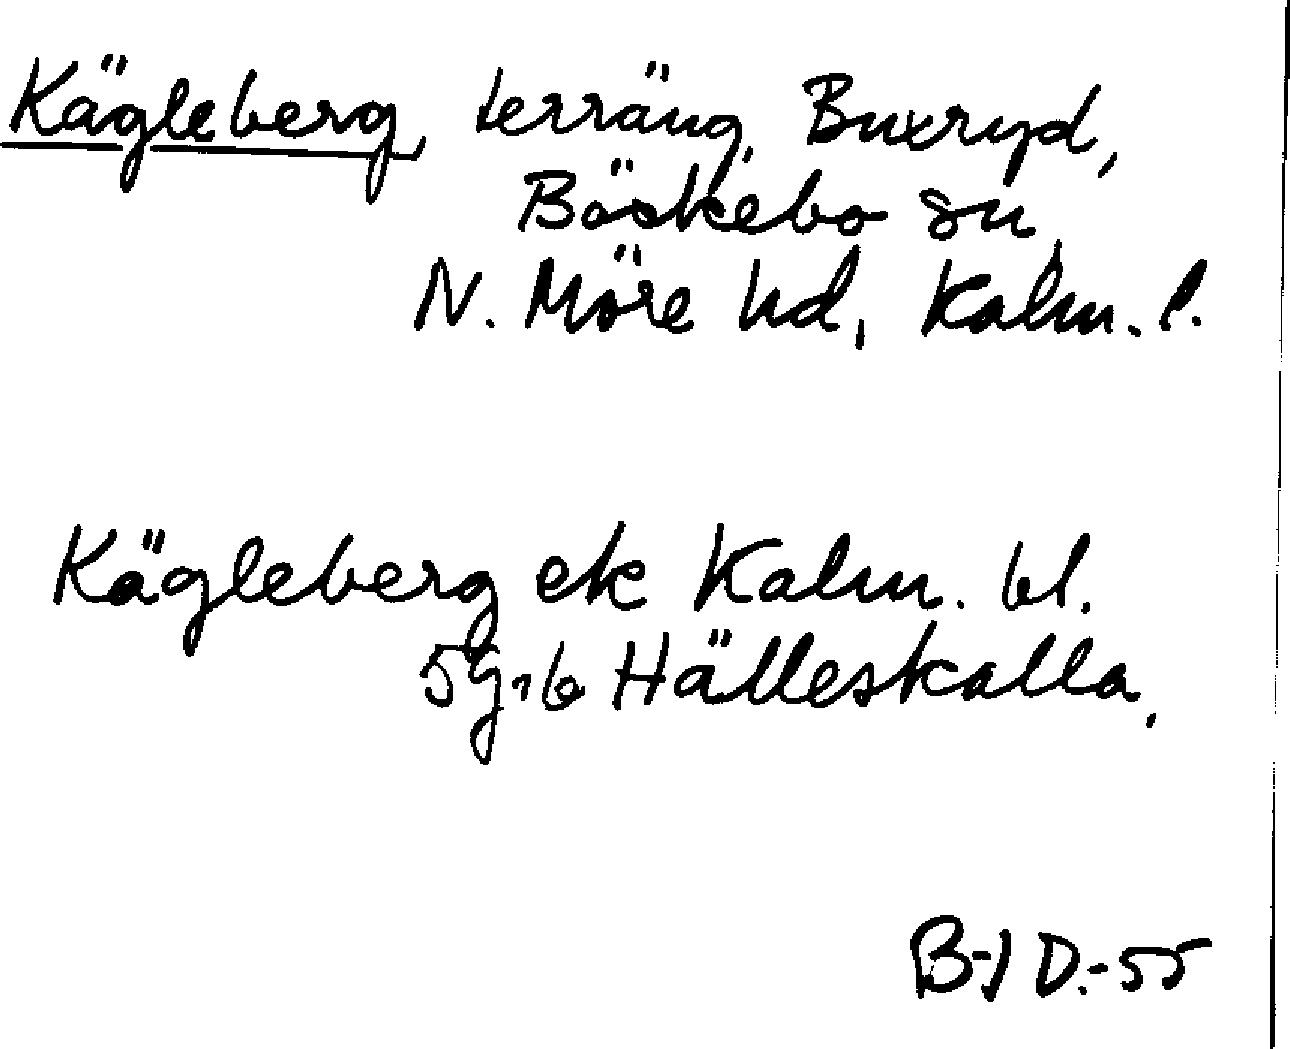 Kägleberg, terräng, Buxryd,
Bäckebo sn
N. Möre hd, Kalm. l.
Kägleberg ek Kalm. bl.
5G, 6 Hälleskalla.
B-J D.-55